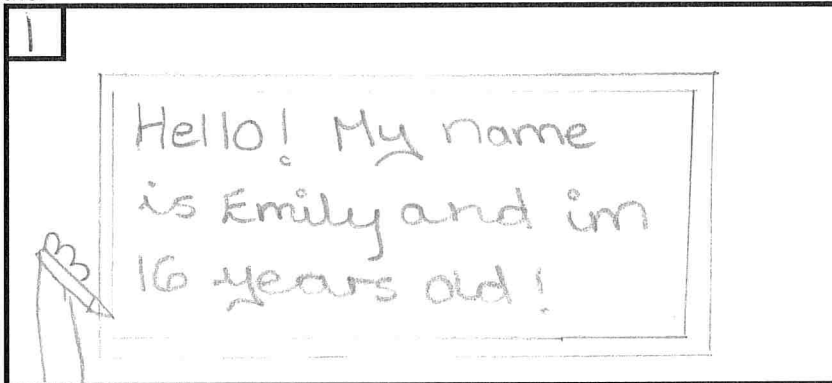 1
Hello! My name
is Emily and im
16 years old!